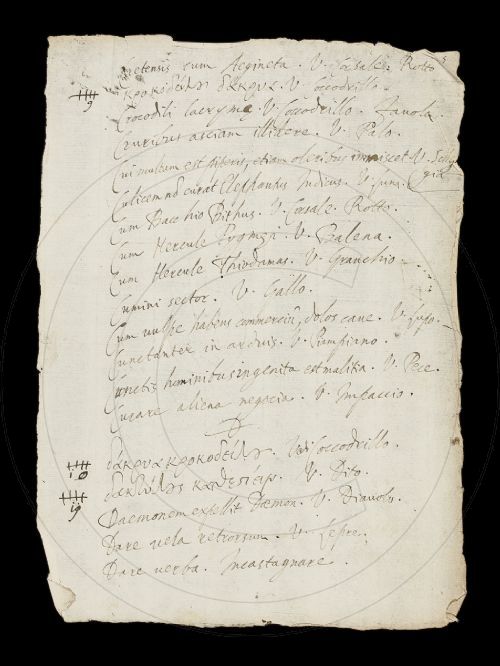 Cretensis cum Aegineta. V. Casale. Rotto
κροκοδείλης δάκρυα. V. Coccodrillo.
9
Crocodili lacrymę. V. Coccodrillo. Favola.
Cruribus asciam illidere. V. Palo.
Cui multum est piperis, etiam oleribus inmiscet V.
Culicem nō curat Elephantus Indicus. V.
Cum Bacchio Bithus. V. Casale. Rotto.
Cum Hercule V. Balena.
Cum Hercule Thiodamas. V. Granchio
Cumini sector. V. Gallo.
Cum vulpe habens commerciū, dolos cave. V. Lupo.
Cunctanter in arduis. V.
Cunctis hominibus ingenita est malitia. V. Pece.
Curare aliena negocia. V. Impaccio.
D
δάκρυα κροκοδείλης. V. Coccodrillo.
10
V. Dito.
19
Daemonem expellit Dæmon. V. Diavolo.
Dare vela retrorsum. V. Lepre.
Dare verba. Incastagnare.